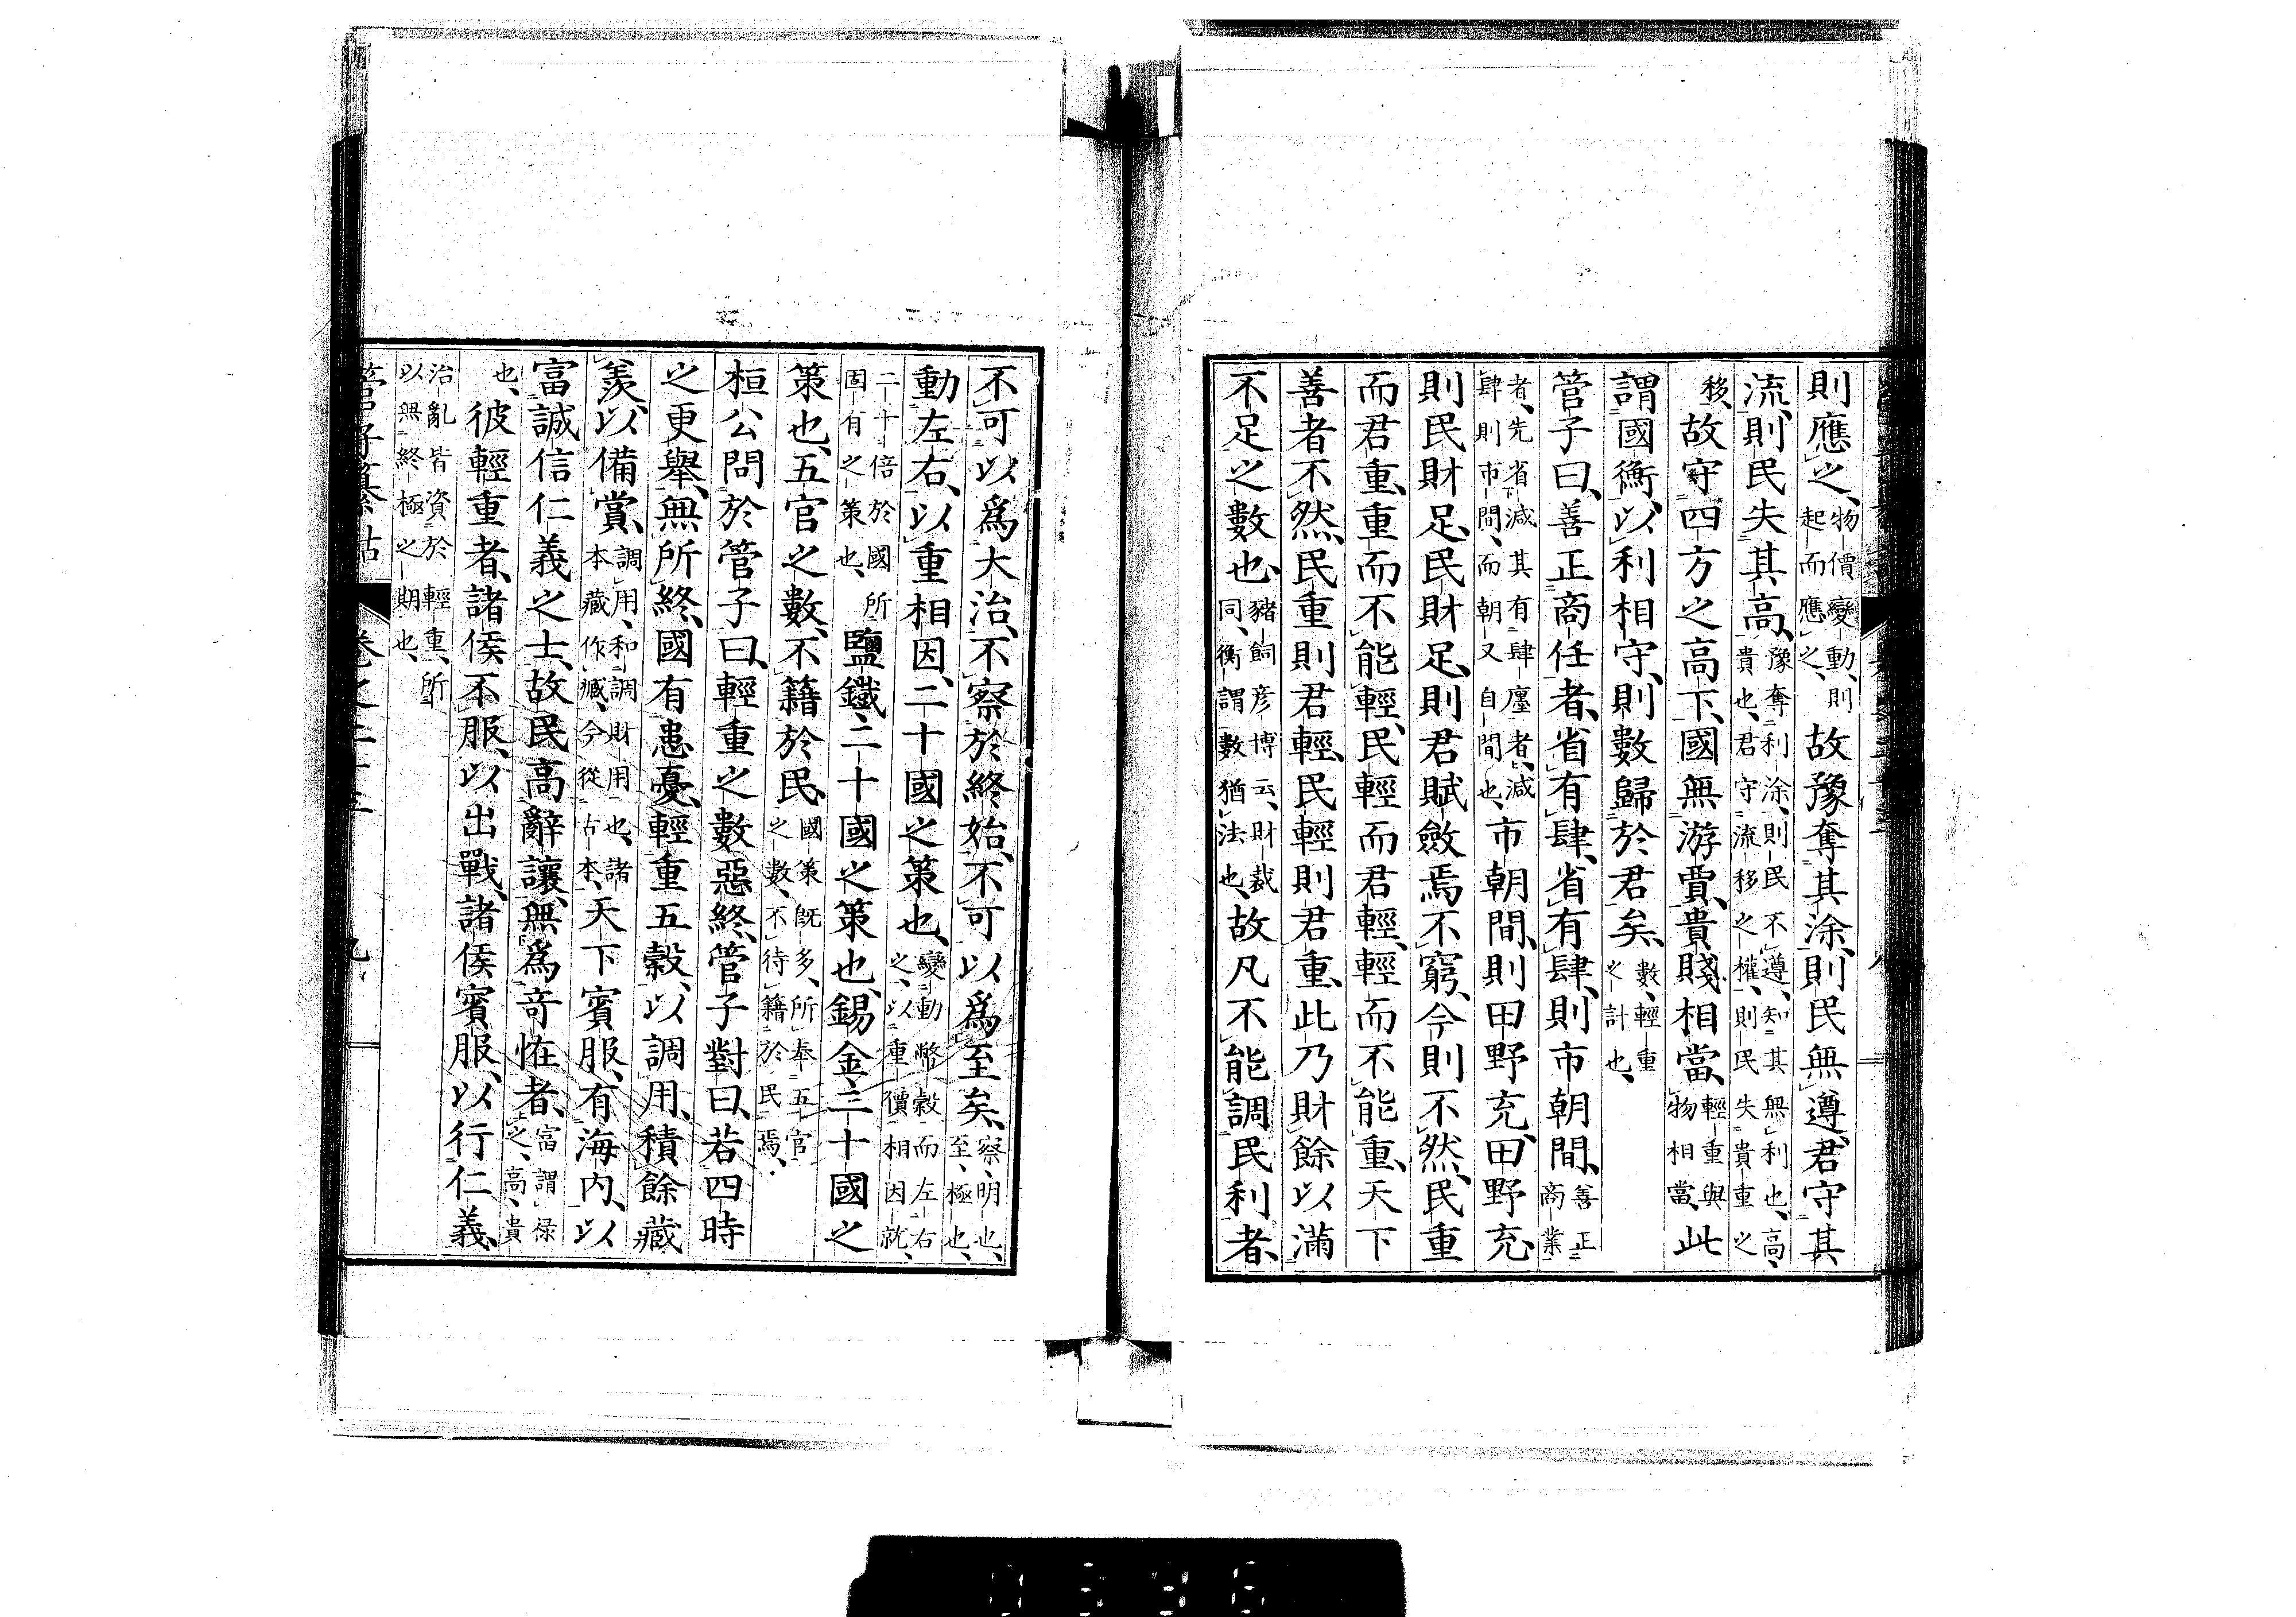 則應之、物價變動、則起而應之、故豫奪其涂、則民無遵、君守其
流、則民失其高、豫奪利涂、則民不遵、知其無利也、高、貴也、君守流移之權、則民失貴重之
移、故守四方之高下、國無游賈、貴賤相當、輕重與物相當、此
謂國衡、以利相守、則數歸於君矣、數、輕重之計也、
管子曰、善正商任者、省有肆、省有肆、則市朝閒、善正商業
者、先省減其有肆廛者、減肆則市間、而朝又自間也、市朝閒、則田野充、田野充、
則民財足、民財足、則君賦斂焉不窮、今則不然、民重
而君重、重而不能輕、民輕而君輕、輕而不能重、天下
善者不然、民重則君輕、民輕則君重、此乃財餘以滿
不足之數也、豬飼彦博云、財裁同、衡謂數猶法也、故凡不能調民利者、
不可以爲大治、不察於終始、不可以爲至矣、察、明也、至、極也、
動左右、以重相因、二十國之策也、變動幣穀而左右之、以重價相因就、
二十倍於國所固有之策也、鹽鐵、二十國之策也、錫金、二十國之
策也、五官之數、不籍於民、國策既多、所奉五官之數、不待籍於民焉、
桓公問於管子曰、輕重之數惡終、管子對曰、若四時
之更舉、無所終、國有患憂、輕重五穀、以調用、積餘藏
羨、以備賞、調用、和調財用也、諸本藏作臧、今從古本、天下賓服、有海內、以
富誠信仁義之士、故民高辭讓、無爲奇怪者、富謂祿之、高、貴
也、彼輕重者、諸侯不服、以出戰、諸侯賓服、以行仁義、
治亂皆資於輕重、所以無終極之期也、
管子纂詁 卷之二十三 九